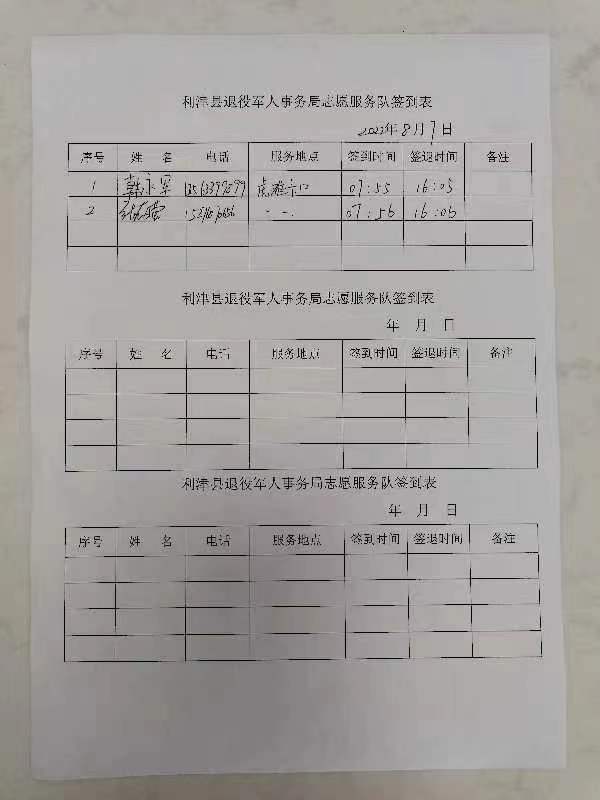 利津县退役军人事务局志愿服务队签到表
2022年8月7日
序号 姓 名 电话 服务地点 签到时间 签退时间 备注
1 韩永军 虎滩卡口 07:55 16:05
2 07:56 16:06
利津县退役军人事务局志愿服务队签到表
年 月 日
序号 姓 名 电话 服务地点 签到时间 签退时间 备注
利津县退役军人事务局志愿服务队签到表
年 月 日
序号 姓 名 电话 服务地点 签到时间 签退时间 备注